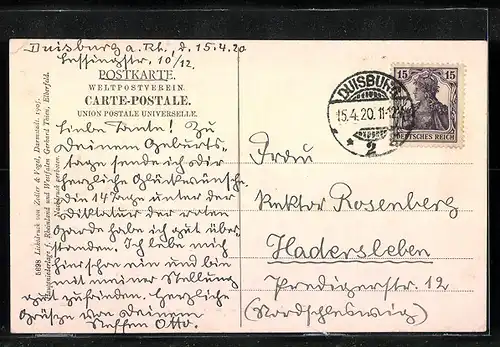 Duisburg a. Rh., d. 15.4.20
Lessingstr. 10/12.
POSTKARTE.
WELTPOSTVEREIN.
CARTE-POSTALE.
UNION POSTALE UNIVERSELLE.
Liebe Tante! Zu
Deinem Geburts-
tage sende ich dir
herzliche Glückwünsche.
Die 14 Tage unter der
Diktatur der roten
Garde habe ich gut über-
standen. Ich lebe mich
hier schon ein und bin
mit meiner Stellung
ganz zufrieden. Herzliche
Grüße von Deinem
Neffen Otto.
5698 Lichtdruck von Zedler & Vogel, Darmstadt. 1905.
Alleinvertrieb f. Rheinland und Westfalen Gerhard Thien, Elberfeld.
Nachdruck verboten.
DUISBURG
15.4.20. 11-12
* 2
15 15
DEUTSCHES REICH
Frau
Rektor Rosenberg
Hadersleben
Predigerstr. 12
(Nordschleswig)